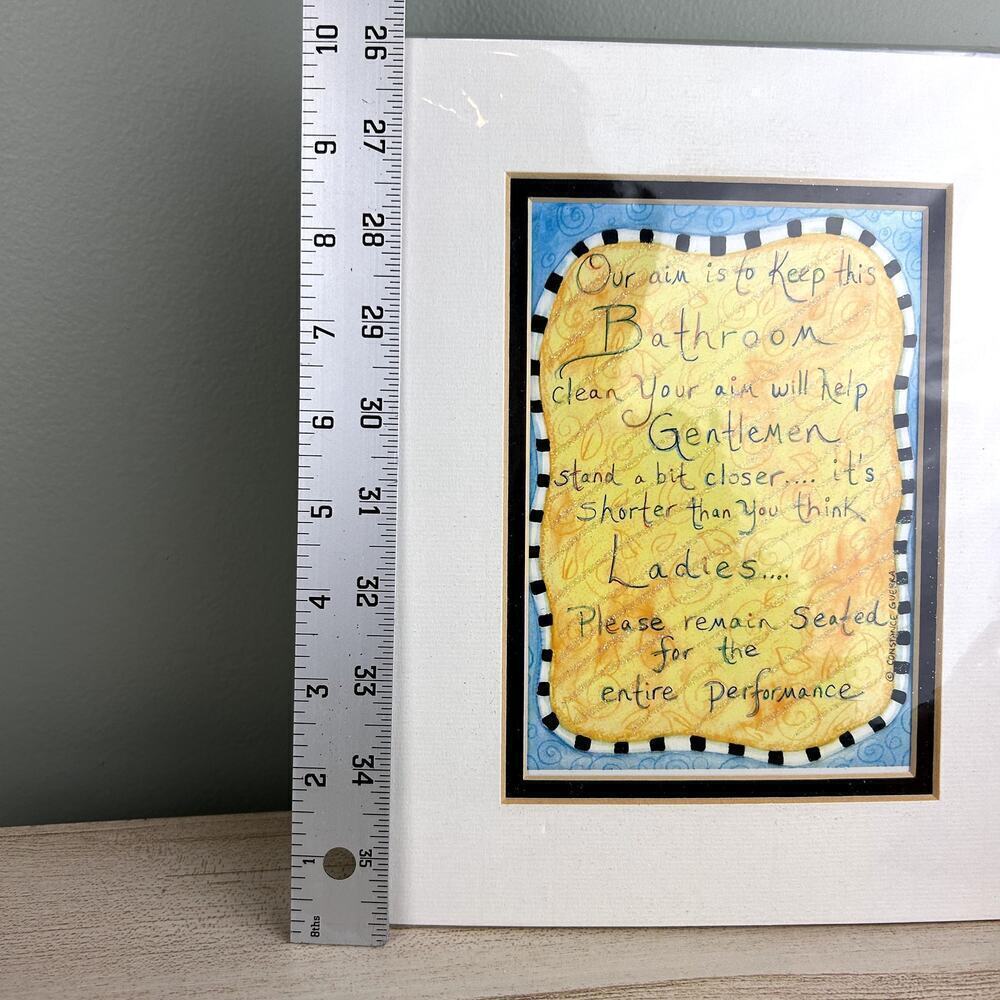 10 26
9 27
8 28
7 29
6 30
5 31
4 32
3 33
2 34
1 35
8ths
Our aim is to Keep this
Bathroom
clean Your aim will help
Gentlemen
stand a bit closer.... it's
shorter than you think
Ladies....
Please remain Seated
for the
entire performance
© CONSTANCE GUERRA